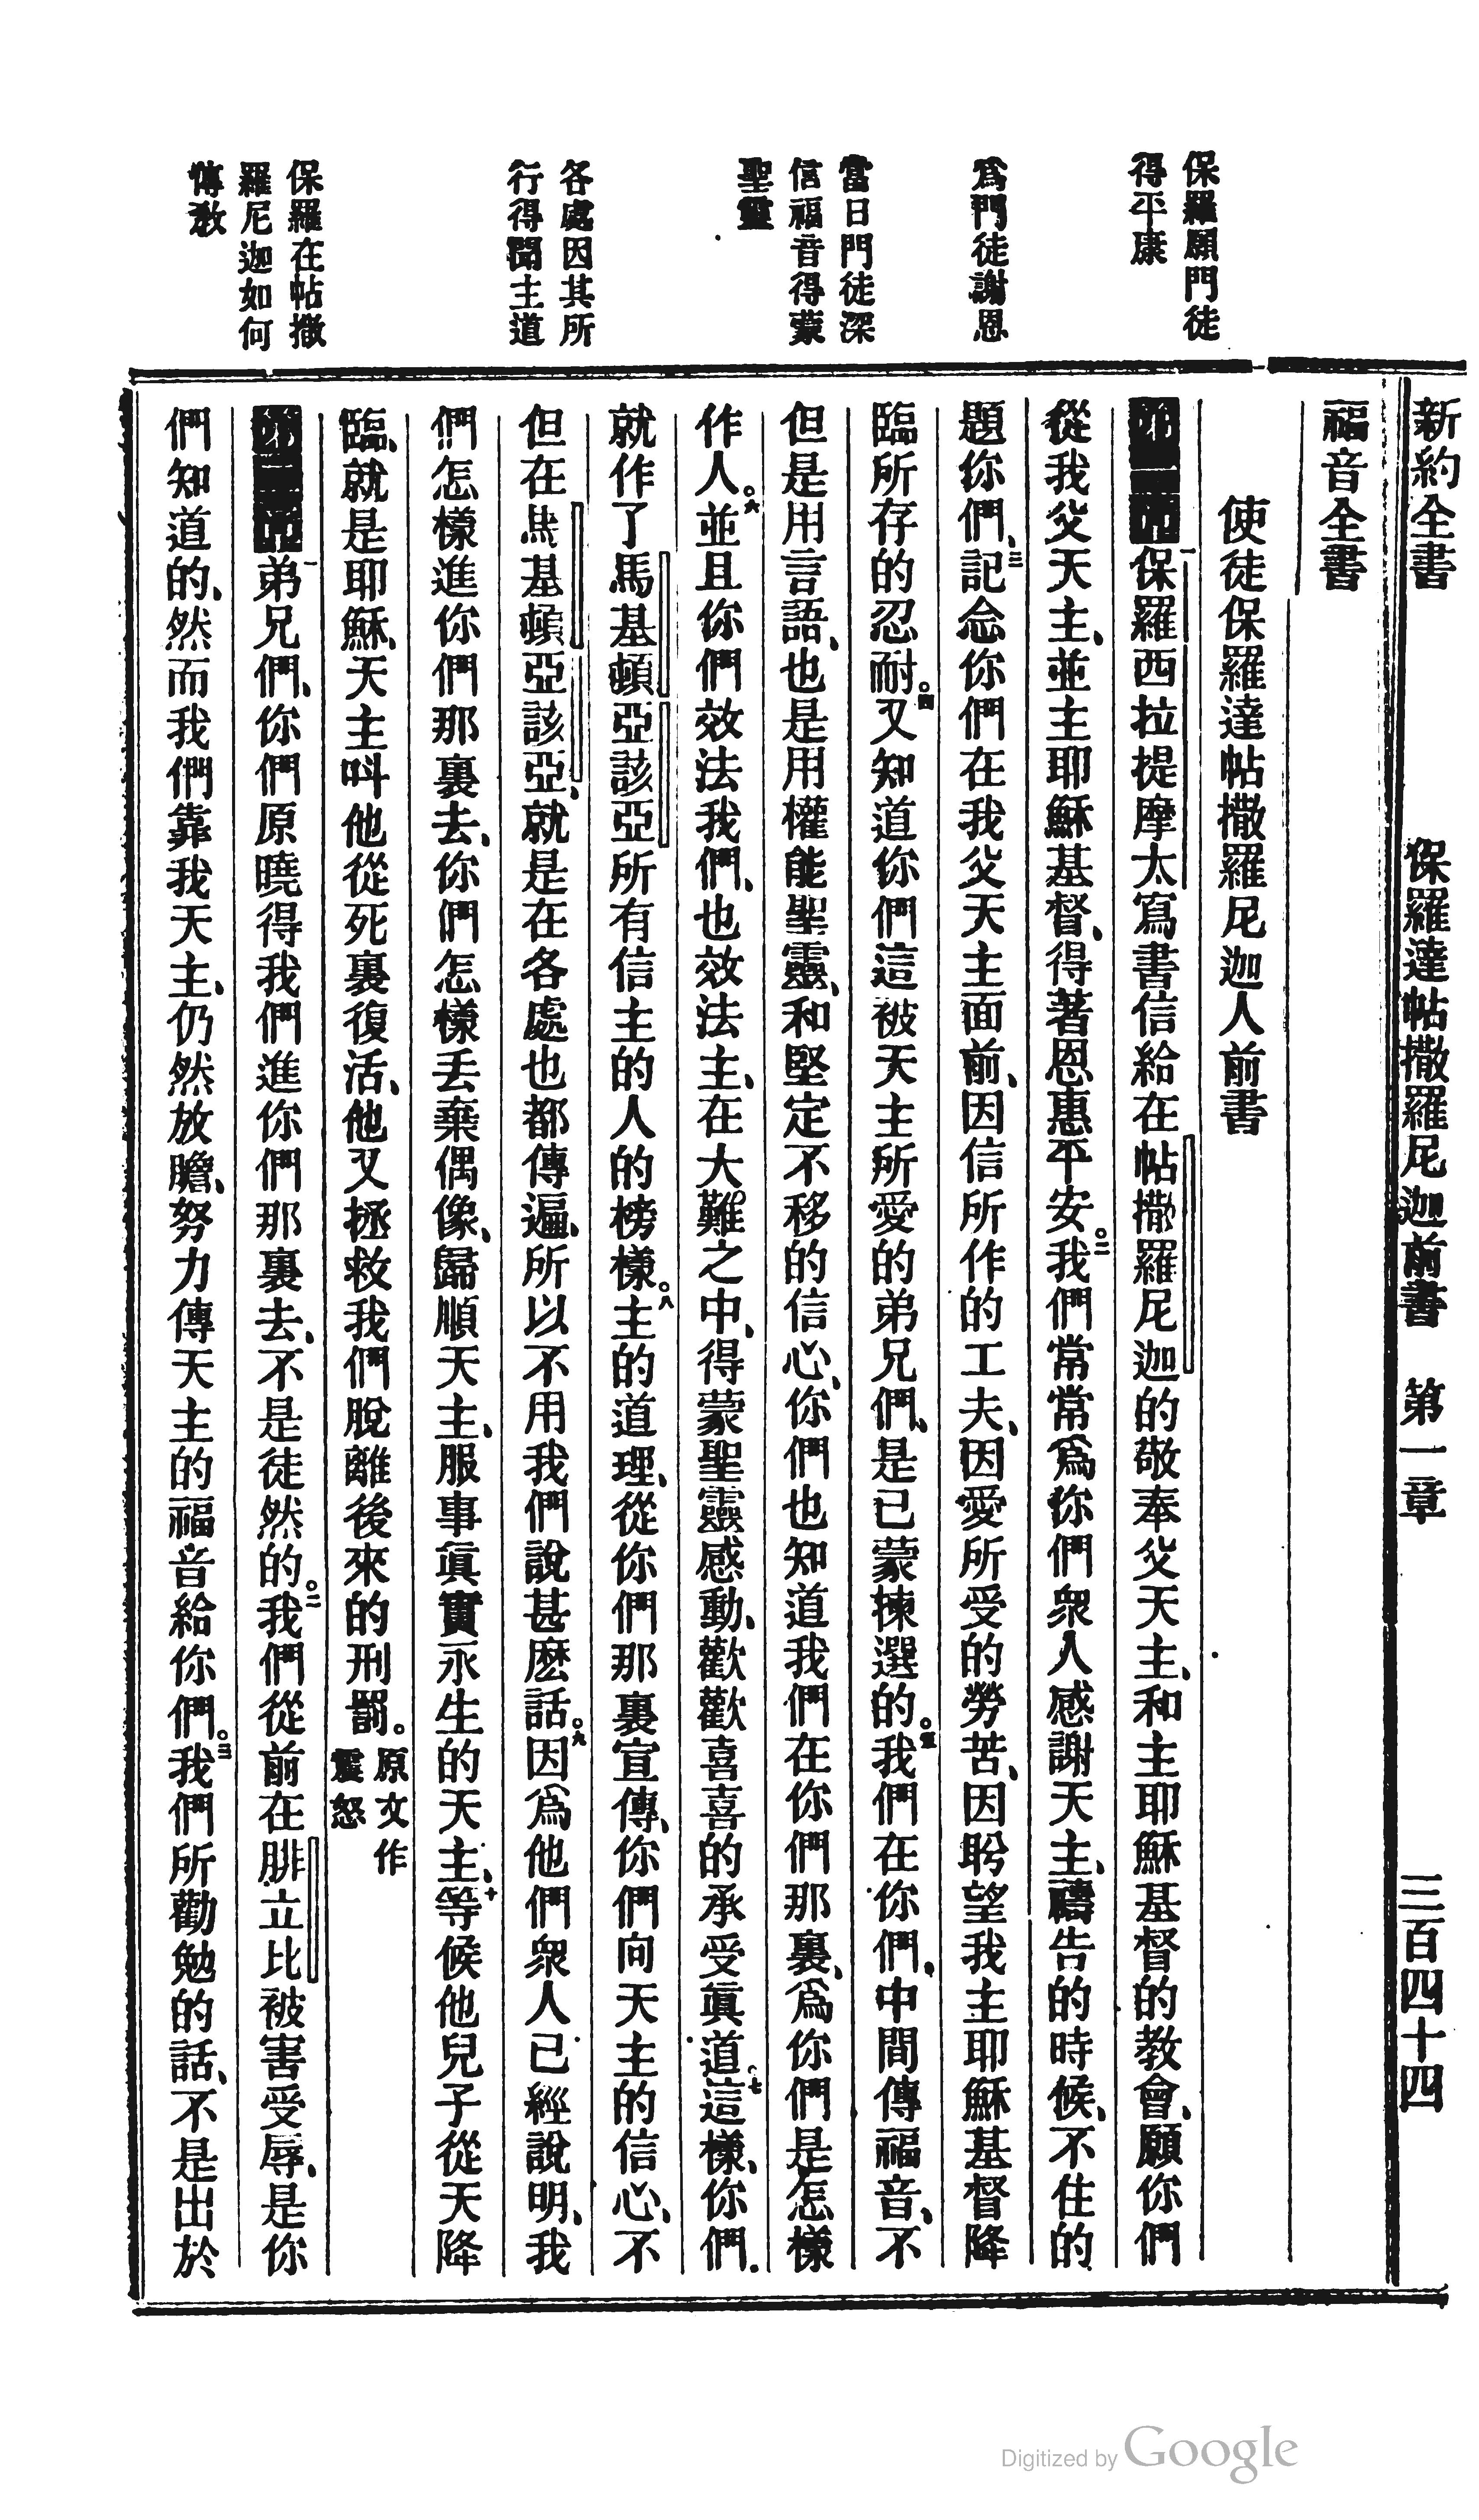 新約全書 保羅達帖撒羅尼迦前書 第一章 三百四十四
保羅願門徒
得平康
爲門徒謝恩
當日門徒深
信福音得蒙
聖靈
各處因其所
行得聞主道
保羅在帖撒
羅尼迦如何
傳教
福音全書
使徒保羅達帖撒羅尼迦人前書
第一章一保羅西拉提摩太寫書信給在帖撒羅尼迦的敬奉父天主、和主耶穌基督的教會、願你們
從我父天主、並主耶穌基督、得著恩惠平安。二我們常常爲你們衆人感謝天主、禱告的時候、不住的
題你們、三記念你們在我父天主面前、因信所作的工夫、因愛所受的勞苦、因盼望我主耶穌基督降
臨所存的忍耐。四又知道你們這被天主所愛的弟兄們、是已蒙揀選的。五我們在你們中間傳福音、不
但是用言語、也是用權能聖靈、和堅定不移的信心、你們也知道我們在你們那裏、爲你們是怎樣
作人。六並且你們效法我們、也效法主、在大難之中、得蒙聖靈感動、歡歡喜喜的承受眞道。七這樣、你們、
就作了馬基頓亞該亞所有信主的人的榜樣。八主的道理、從你們那裏宣傳、你們向天主的信心、不
但在馬基頓亞該亞、就是在各處也都傳遍、所以不用我們說甚麽話。九因爲他們衆人已經說明、我
們怎樣進你們那裏去、你們怎樣丟棄偶像、歸順天主、服事眞實永生的天主、十等候他兒子從天降
臨、就是耶穌、天主呌他從死裏復活、他又拯救我們脫離後來的刑罰。原文作震怒
第二章一弟兄們、你們原曉得我們進你們那裏去、不是徒然的。二我們從前在腓立比被害受辱、是你
們知道的、然而我們靠我天主、仍然放膽、努力傳天主的福音給你們。三我們所勸勉的話、不是出於
Digitized by Google